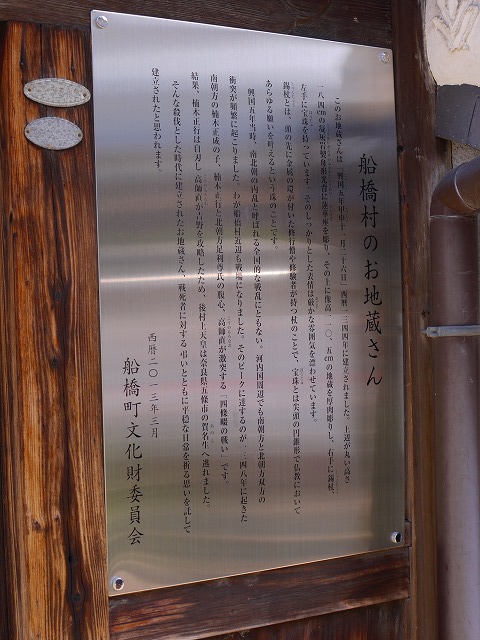 船橋村のお地蔵さん
このお地蔵さんは「興国五年甲申十一月二十六日」西暦一三四四年に建立されました。上辺が丸い高さ
一八四cmの凝灰岩製舟形光背に蓮華座を彫り、その上に像高一一〇、五cmの地蔵を厚肉彫りし、右手に錫杖、
左手に宝珠を持っています。そのしっかりとした表情は厳かな雰囲気を漂わせています。
錫杖とは、頭の先に金属の環が付いた修行僧や修験者が持つ杖のことで、宝珠とは尖頭の円錐形で仏教において
あらゆる願いを叶えるという珠のことです。
興国五年当時、南北朝の内乱と呼ばれる全国的な戦乱にともない。河内国周辺でも南朝方と北朝方双方の
衝突が頻繁に起こりました。わが船橋村近辺も戦場になりました。そのピークに達するのが一三四八年に起きた
南朝方の楠木正成の子、楠木正行と北朝方足利尊氏の腹心、高師直が激突する「四條畷の戦い」です。
結果、楠木正行は自刃し高師直が吉野を攻略したため、後村上天皇は奈良県五條市の賀名生へ逃れました。
そんな殺伐とした時代に建立されたお地蔵さん、戦死者に対する弔いとともに平穏な日常を祈る思いを託して
建立されたと思われます。
西暦二〇一三年三月
船橋町文化財委員会